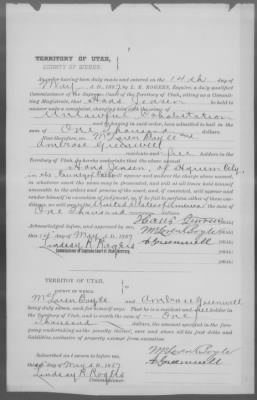 TERRITORY OF UTAH,
COUNTY OF WEBER.
An order having been duly made and entered on the 14th day of
May A.D. 1887, by L. R. ROGERS, Esquire, a duly qualified
Commissioner of the Supreme Court of the Territory of Utah, sitting as a Commit-
ting Magistrate, that Hans Jensen be held to
answer unto a complaint charging him with the crime of
Unlawful Cohabitation
and he being in said order, been admitted to bail in the
sum of One Thousand dollars.
Now therefore, we McLaren Boyle and
Ambrose Greenwell
residents and free holders in the
Territory of Utah, do hereby undertake that the above named
Hans Jensen, of
in the County of will appear and answer the charge above mentioned,
in whatever court the same may be prosecuted, and will at all times hold himself
amenable to the orders and process of the court, and, if convicted, will appear and
render himself in execution of judgment, or, if he fail to perform either of these con-
ditions, will pay United States of America the sum of
One thousand dollars.
Acknowledged before, and approved by me, Hans Jensen [SEAL]
14 day of May A.D. 1887 McLaren Boyle [SEAL]
Lindsay R. Rogers A Greenwell [SEAL]
Commissioner of Supreme Court of Utah Territory. [SEAL]
TERRITORY OF UTAH,
McLaren Boyle and Ambrose Greenwell
being duly sworn, each for himself says: That he is a resident and free holder in
the Territory of Utah, and is worth the sum of One
thousand dollars, the amount specified in the fore-
going undertaking as the penalty thereof, over and above all his just debts and
liabilities, exclusive of property exempt from execution.
Subscribed and sworn to before me McLaren Boyle
day of May A.D. 1887 A Greenwell
Lindsay R. Rogers
Commissioner.